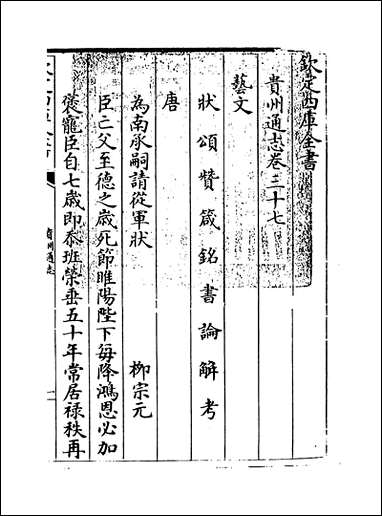 欽定四庫全書
貴州通志卷三十七
藝文
狀 頌 贊 箴 銘 書 論 解 考
唐
為南承嗣請從軍狀 柳宗元
臣亡父至德之歲死節睢陽陛下每降鴻恩必加
褒寵臣自七歲即忝班榮垂五十年常居禄秩再
貴州通志